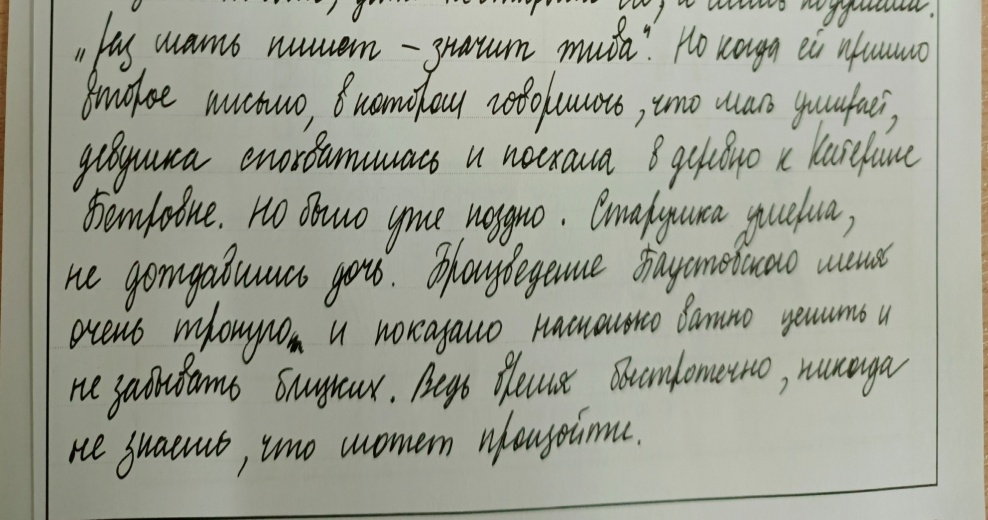 и лишь подумала:
„раз мать пишет – значит жива". Но когда ей пришло
второе письмо, в котором говорилось, что мать умирает,
девушка спохватилась и поехала в деревню к Катерине
Петровне. Но было уже поздно. Старушка умерла,
не дождавшись дочь. Произведение Паустовского меня
очень тронуло и показало насколько важно ценить и
не забывать близких. Ведь время быстротечно, никогда
не знаешь, что может произойти.